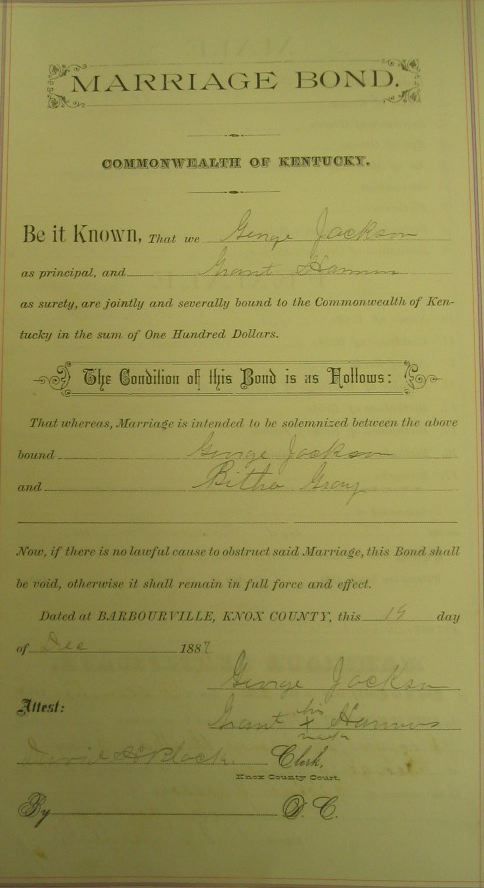 MARRIAGE BOND.
COMMONWEALTH OF KENTUCKY.
Be it Known, That we George Jackson
as principal, and Grant Hammus
as surety, are jointly and severally bound to the Commonwealth of Ken-
tucky in the sum of One Hundred Dollars.
The Condition of this Bond is as Follows:
That whereas, Marriage is intended to be solemnized between the above
bound George Jackson
and Bitha Gray
Now, if there is no lawful cause to obstruct said Marriage, this Bond shall
be void, otherwise it shall remain in full force and effect.
Dated at BARBOURVILLE, KNOX COUNTY, this 19 day
of Dec 1887
George Jackson
his
Attest: Grant x Hammus
mark
Clerk,
Knox County Court.
By D. C.